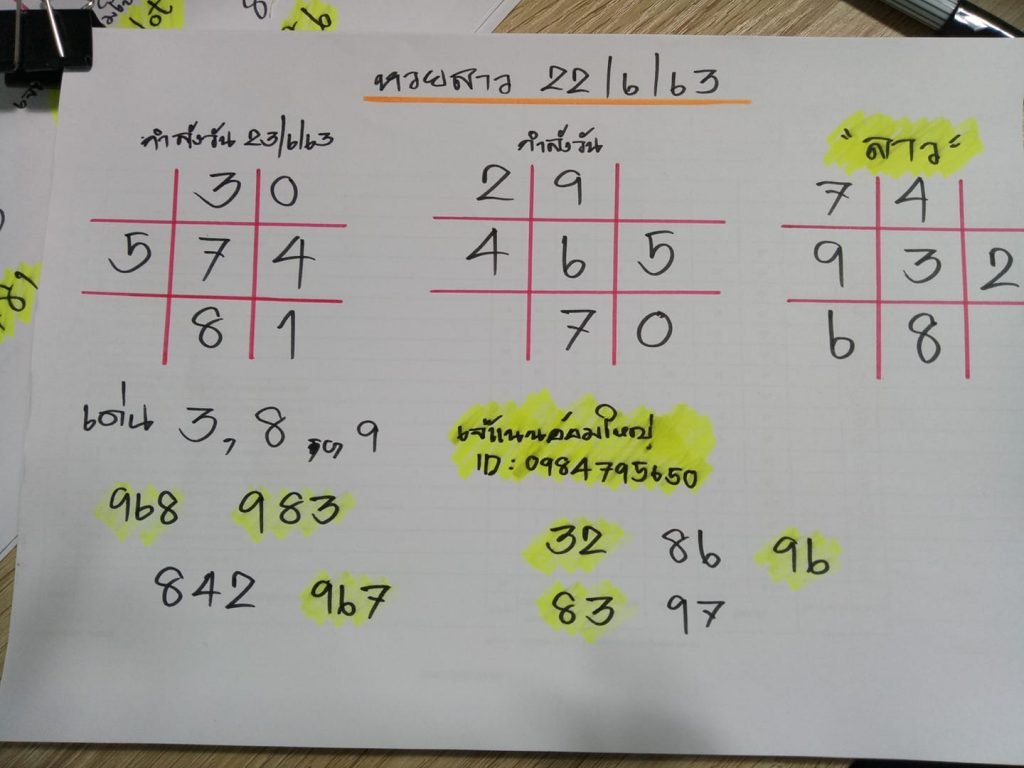 หวยลาว 22/6/63
กำลังวัน 23/6/63
3 0
5 7 4
8 1
กำลังวัน
2 9
4 6 5
7 0
"ลาว"
7 4
9 3 2
6 8
เด่น 3, 8, 9
968 983
842 967
ID: 0984795650
32 86 96
83 97